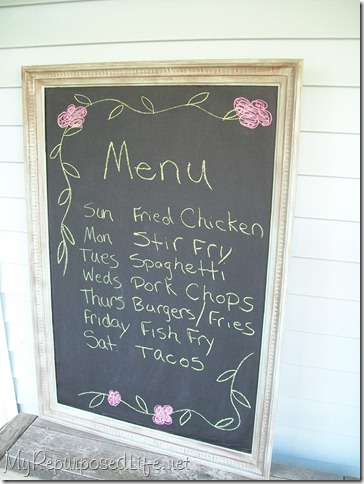 Menu
Sun Fried Chicken
Mon Stir Fry
Tues Spaghetti
Weds Pork Chops
Thurs Burgers/Fries
Friday Fish Fry
Sat. Tacos
MyRepurposedLife.net